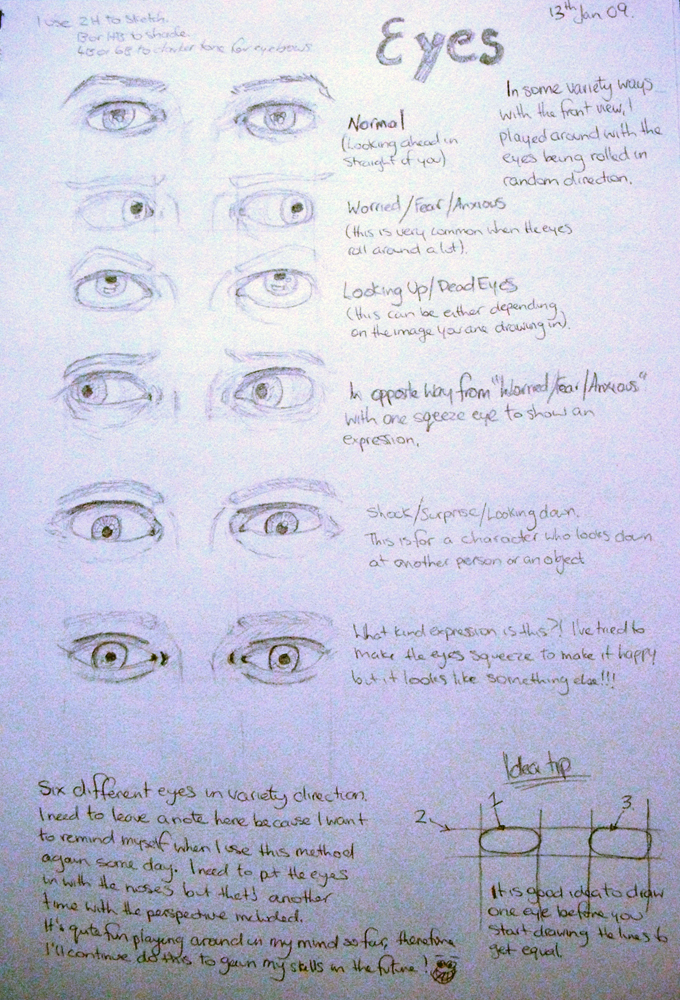 I use 2H to sketch.
B or HB to shade.
4B or 6B to darker tone for eyebrows
Eyes
13th Jan 09.
In some variety ways
with the front view, I
played around with the
eyes being rolled in
random direction.
Normal
(Looking ahead in
straight of you)
Worried/Fear/Anxious
(this is very common when the eyes
roll around a lot).
Looking Up/Dead Eyes
(this can be either depending
on the image you are drawing in).
In opposite way from "Worried/Fear/Anxious"
with one sqeeze eye to show an
expression.
Shock/Surprise/Looking down.
This is for a character who looks down
at another person or an object
What kind expression is this?! I've tried to
make the eyes squeeze to make it happy
but it looks like something else!!!
Six different eyes in variety direction.
I need to leave a note here because I want
to remind myself when I use this method
again some day. I need to put the eyes
in with the noses but thats another
time with the perspective included.
It's quite fun playing around in my mind so far, therefore
I'll continue do this to gain my skills in the future!
Idea tip
1
2
3
It is good idea to draw
one eye before you
start drawing the lines to
get equal